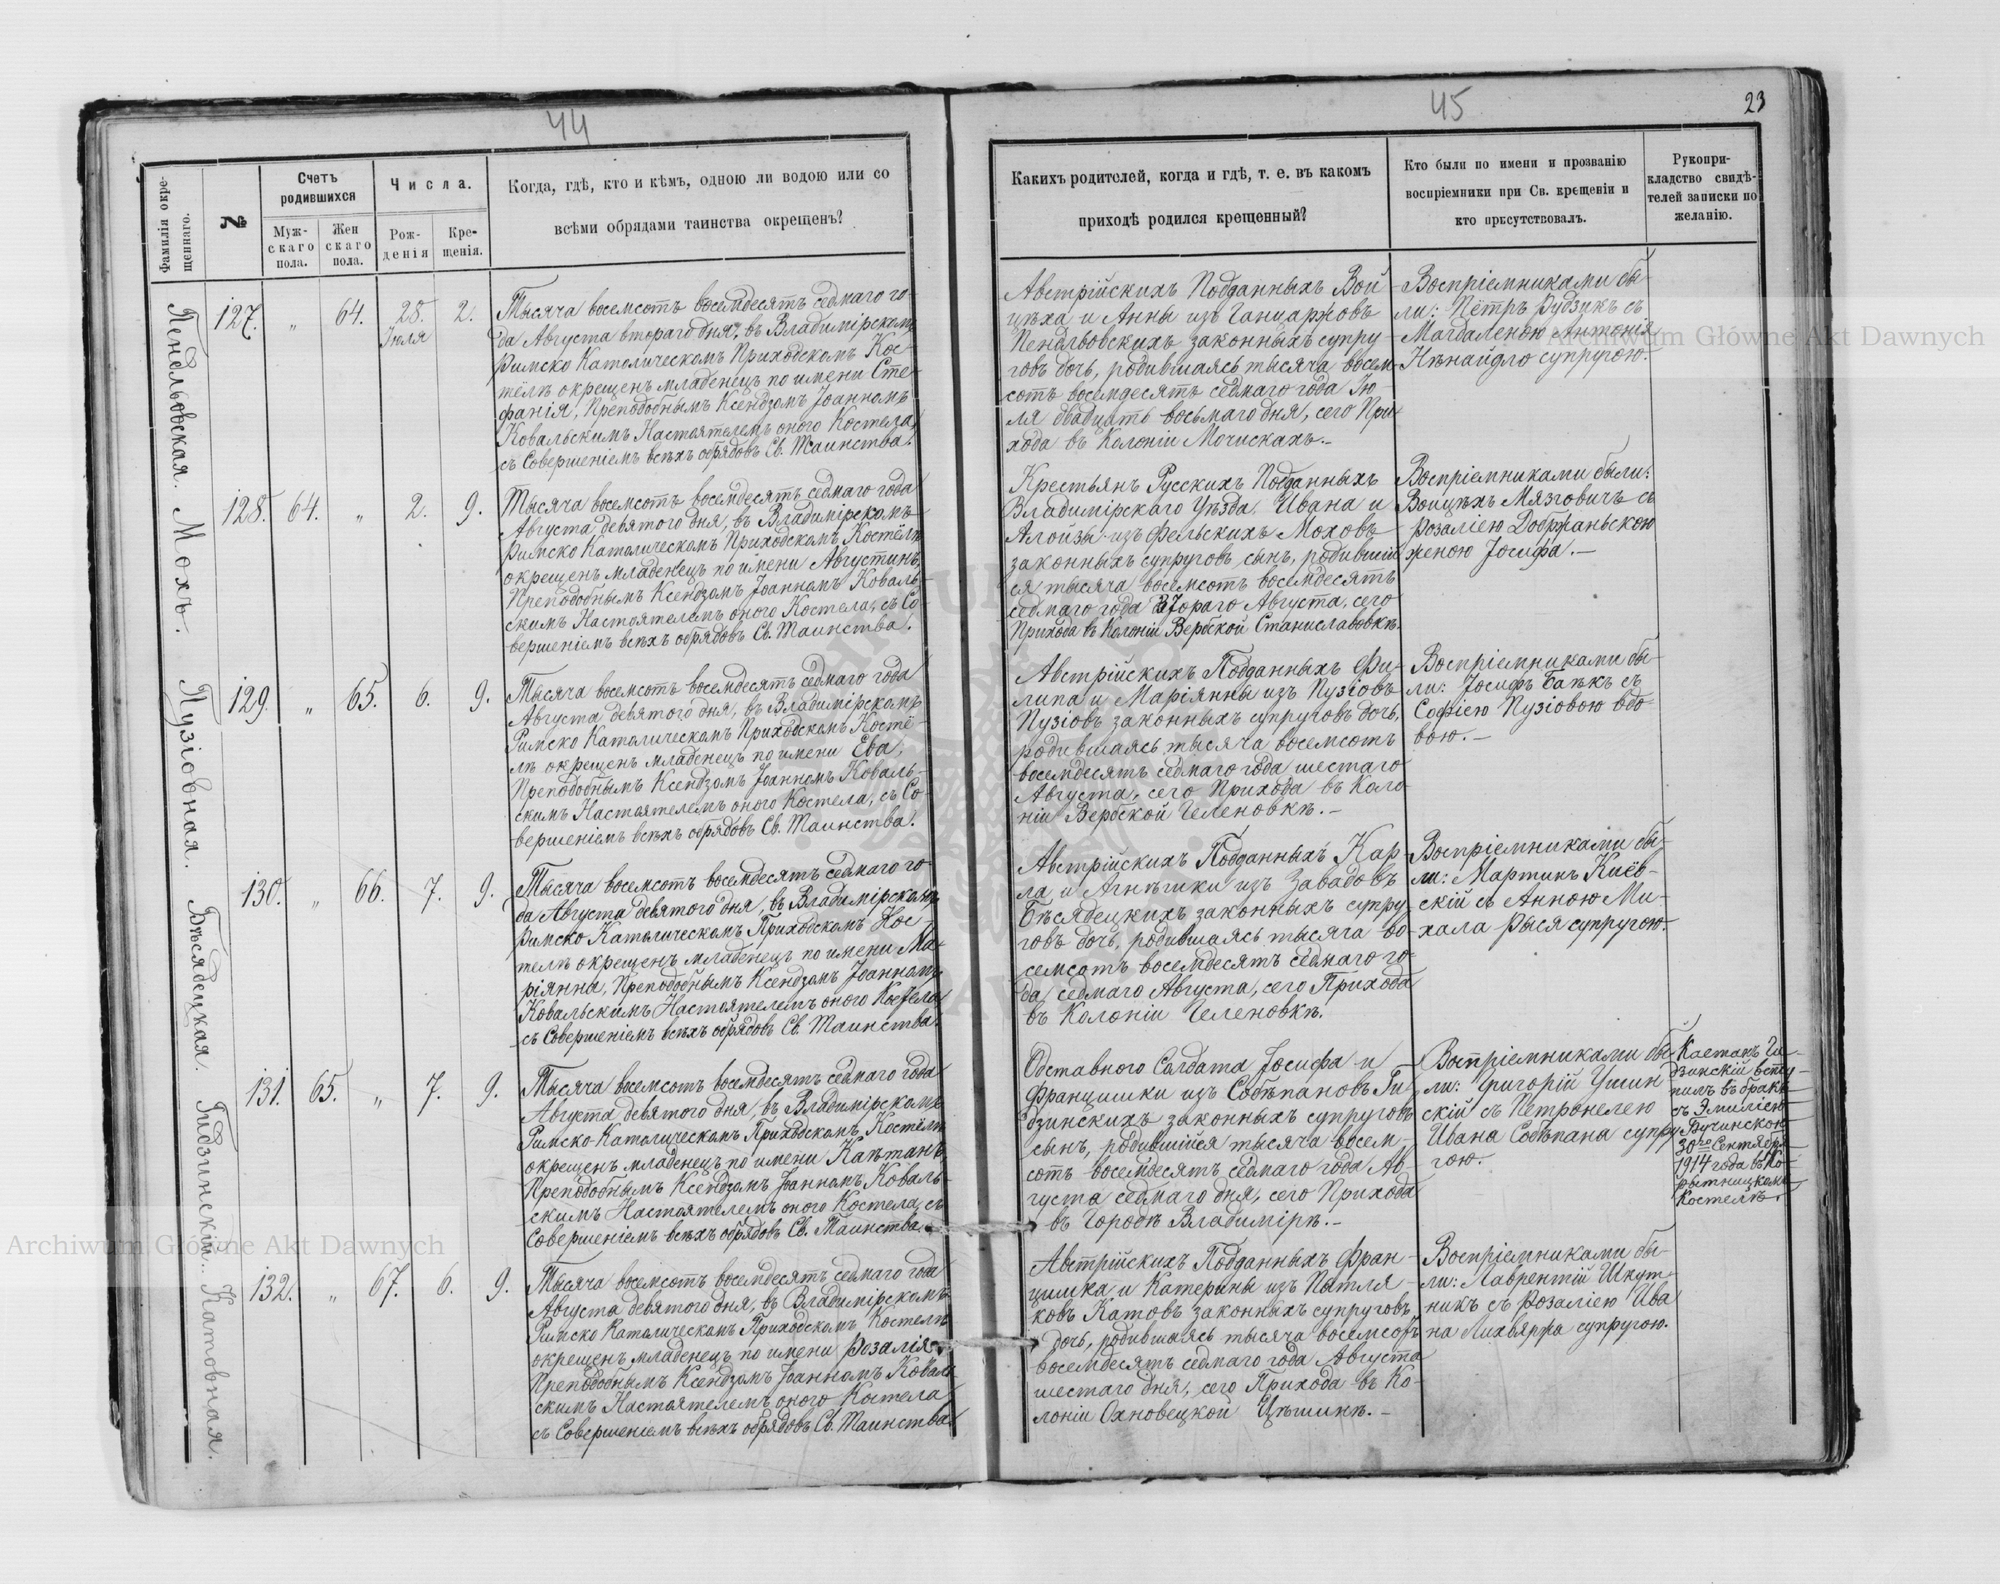 44
Фамилія окре-
щеннаго.
№
Счетъ
родившихся
Муж-
скаго
пола.
Жен
скаго
пола.
Числа.
Рож-
денія
Кре-
щенія.
Когда, гдѣ, кто и кѣмъ, одною ли водою или со
всѣми обрядами таинства окрещенъ?
Пендельовская.
127. „ 64. 28. Іюля 2.
Тысяча восемсотъ восемдесятъ седмаго го-
да Августа втораго дня, въ Владимірскомъ
Римско Католическомъ Приходскомъ Кос-
телѣ окрещенъ младенецъ по имени Сте-
фанія, Преподобнымъ Ксендзомъ Іоанномъ
Ковальскимъ Настоятелемъ оного Костела,
съ Совершеніемъ всѣхъ обрядовъ Св. Таинства.
Мохъ.
128. 64. „ 2. 9.
Тысяча восемсотъ восемдесятъ седмаго года
Августа девятого дня, въ Владимірскомъ
Римско Католическомъ Приходскомъ Костёлѣ
окрещенъ младенецъ по имени Августинъ,
Преподобнымъ Ксендзомъ Іоанномъ Коваль-
скимъ Настоятелемъ оного Костела, съ Со-
вершеніемъ всѣхъ обрядовъ Св. Таинства.
Пузіовная.
129. „ 65. 6. 9.
Тысяча восемсотъ восемдесятъ седмаго года
Августа девятого дня, въ Владимірскомъ
Римско Католическомъ Приходскомъ Костё-
лѣ окрещенъ младенецъ по имени Ева,
Преподобнымъ Ксендзомъ Іоанномъ Коваль-
скимъ Настоятелемъ оного Костела, съ Со-
вершеніемъ всѣхъ обрядовъ Св. Таинства.
Бѣсядецкая.
130. „ 66. 7. 9.
Тысяча восемсотъ восемдесятъ седмаго го-
да Августа девятого дня, въ Владимірскомъ
Римско Католическомъ Приходскомъ Кос-
телѣ окрещенъ младенецъ по имени Ма-
ріянна, Преподобнымъ Ксендзомъ Іоанномъ
Ковальскимъ Настоятелемъ оного Костела
съ Совершеніемъ всѣхъ обрядовъ Св. Таинства.
Гидзинскій.
131. 65. „ 7. 9.
Тысяча восемсотъ восемдесятъ седмаго года
Августа девятого дня, въ Владимірскомъ
Римско-Католическомъ Приходскомъ Костелѣ
окрещенъ младенецъ по имени Каетанъ,
Преподобнымъ Ксендзомъ Іоанномъ Коваль-
скимъ Настоятелемъ оного Костела, съ
Совершеніемъ всѣхъ обрядовъ Св. Таинства.
Катовная.
132. „ 67. 6. 9.
Тысяча восемсотъ восемдесятъ седмаго года
Августа девятого дня, въ Владимірскомъ
Римско Католическомъ Приходскомъ Костелѣ
окрещенъ младенецъ по имени Розалія,
Преподобнымъ Ксендзомъ Іоанномъ Коваль-
скимъ Настоятелемъ оного Костела
съ Совершеніемъ всѣхъ обрядовъ Св. Таинства
45
23
Какихъ родителей, когда и гдѣ, т. е. въ какомъ
приходѣ родился крещенный?
Кто были по имени и прозванію
воспріемники при Св. крещеніи и
кто присутствовалъ.
Рукопри-
кладство свидѣ-
телей записки по
желанію.
Австрійскихъ Подданныхъ Вой-
цѣха и Анны изъ Ганцаржовъ
Пендлъвовскихъ законныхъ супру-
говъ дочь, родившаясь тысяча восем-
сотъ восемдесятъ седмаго года Ію-
ля двадцать восьмаго дня, сего При-
хода въ Колоніи Мочискахъ.-
Воспріемниками бы-
ли: Пётръ Рудзикъ съ
Магдаленою Антонія
Нѣнайдло супругою.-
Крестьянъ Русскихъ Подданныхъ
Владимірскаго Уѣзда Ивана и
Алойзы изъ Фельскихъ Моховъ
законныхъ супруговъ сынъ, родившій
ся тысяча восемсотъ восемдесятъ
седмаго года Втораго Августа, сего
Прихода въ Колоніи Вербской Станиславовкѣ.
Воспріемниками были:
Войцѣхъ Мязговичъ съ
Розаліею Добржаньскою
женою Іосифа.-
Австрійскихъ Подданныхъ Фи-
липа и Маріянны изъ Пузіовъ
Пузіовъ законныхъ супруговъ дочь,
родившаясь тысяча восемсотъ
восемдесятъ седмаго года шестаго
Августа, сего Прихода въ Коло
ніи Вербской Геленовкѣ.-
Воспріемниками бы-
ли: Іосифъ Бакъ съ
Софіею Пузіовою вдо-
вою.-
Австрійскихъ Подданныхъ Кар-
ла и Агнѣшки изъ Завадовъ
Бѣсядецкихъ законныхъ супру-
говъ дочь, родившаясь тысяга во-
семсотъ восемдесятъ седмаго го-
да, седмаго Августа, сего Прихода
въ Колоніи Геленовкѣ.
Воспріемниками бы-
ли: Мартинъ Киёв-
скій съ Анною Ми-
хала Рыся супругою.
Одставного Солдата Іосифа и
Францишки изъ Собѣпановъ Ги-
дзинскихъ законныхъ супруговъ
сынъ, родившійся тысяча восем-
сотъ восемдесятъ седмаго года Ав-
густа седмаго дня, сего Прихода
въ Городѣ Владимірѣ.-
Воспріемниками бы-
ли: Григорій Ушин
скій съ Петронелею
Ивана Собѣпана супру
гою.
Каетанъ Ги-
дзинскій всту-
пилъ въ бракъ
съ Эмиліею
Вучинскою
30го Сентября
1914 года въ Ко-
рытницкомъ
Костелѣ.
Австрійскихъ Подданныхъ Фран-
цишка и Катерины изъ Патля-
ковъ Катовъ законныхъ супруговъ
дочь, родившаясь тысяча восемсотъ
восемдесятъ седмаго года Августа
шестаго дня, сего Прихода въ Ко-
лоніи Охновецкой Цѣшинѣ.-
Воспріемниками бы-
ли: Лаврентій Шкут-
никъ съ Розаліею Ива
на Лихвярра супругою.
Archiwum Główne Akt Dawnych
Archiwum Główne Akt Dawnych